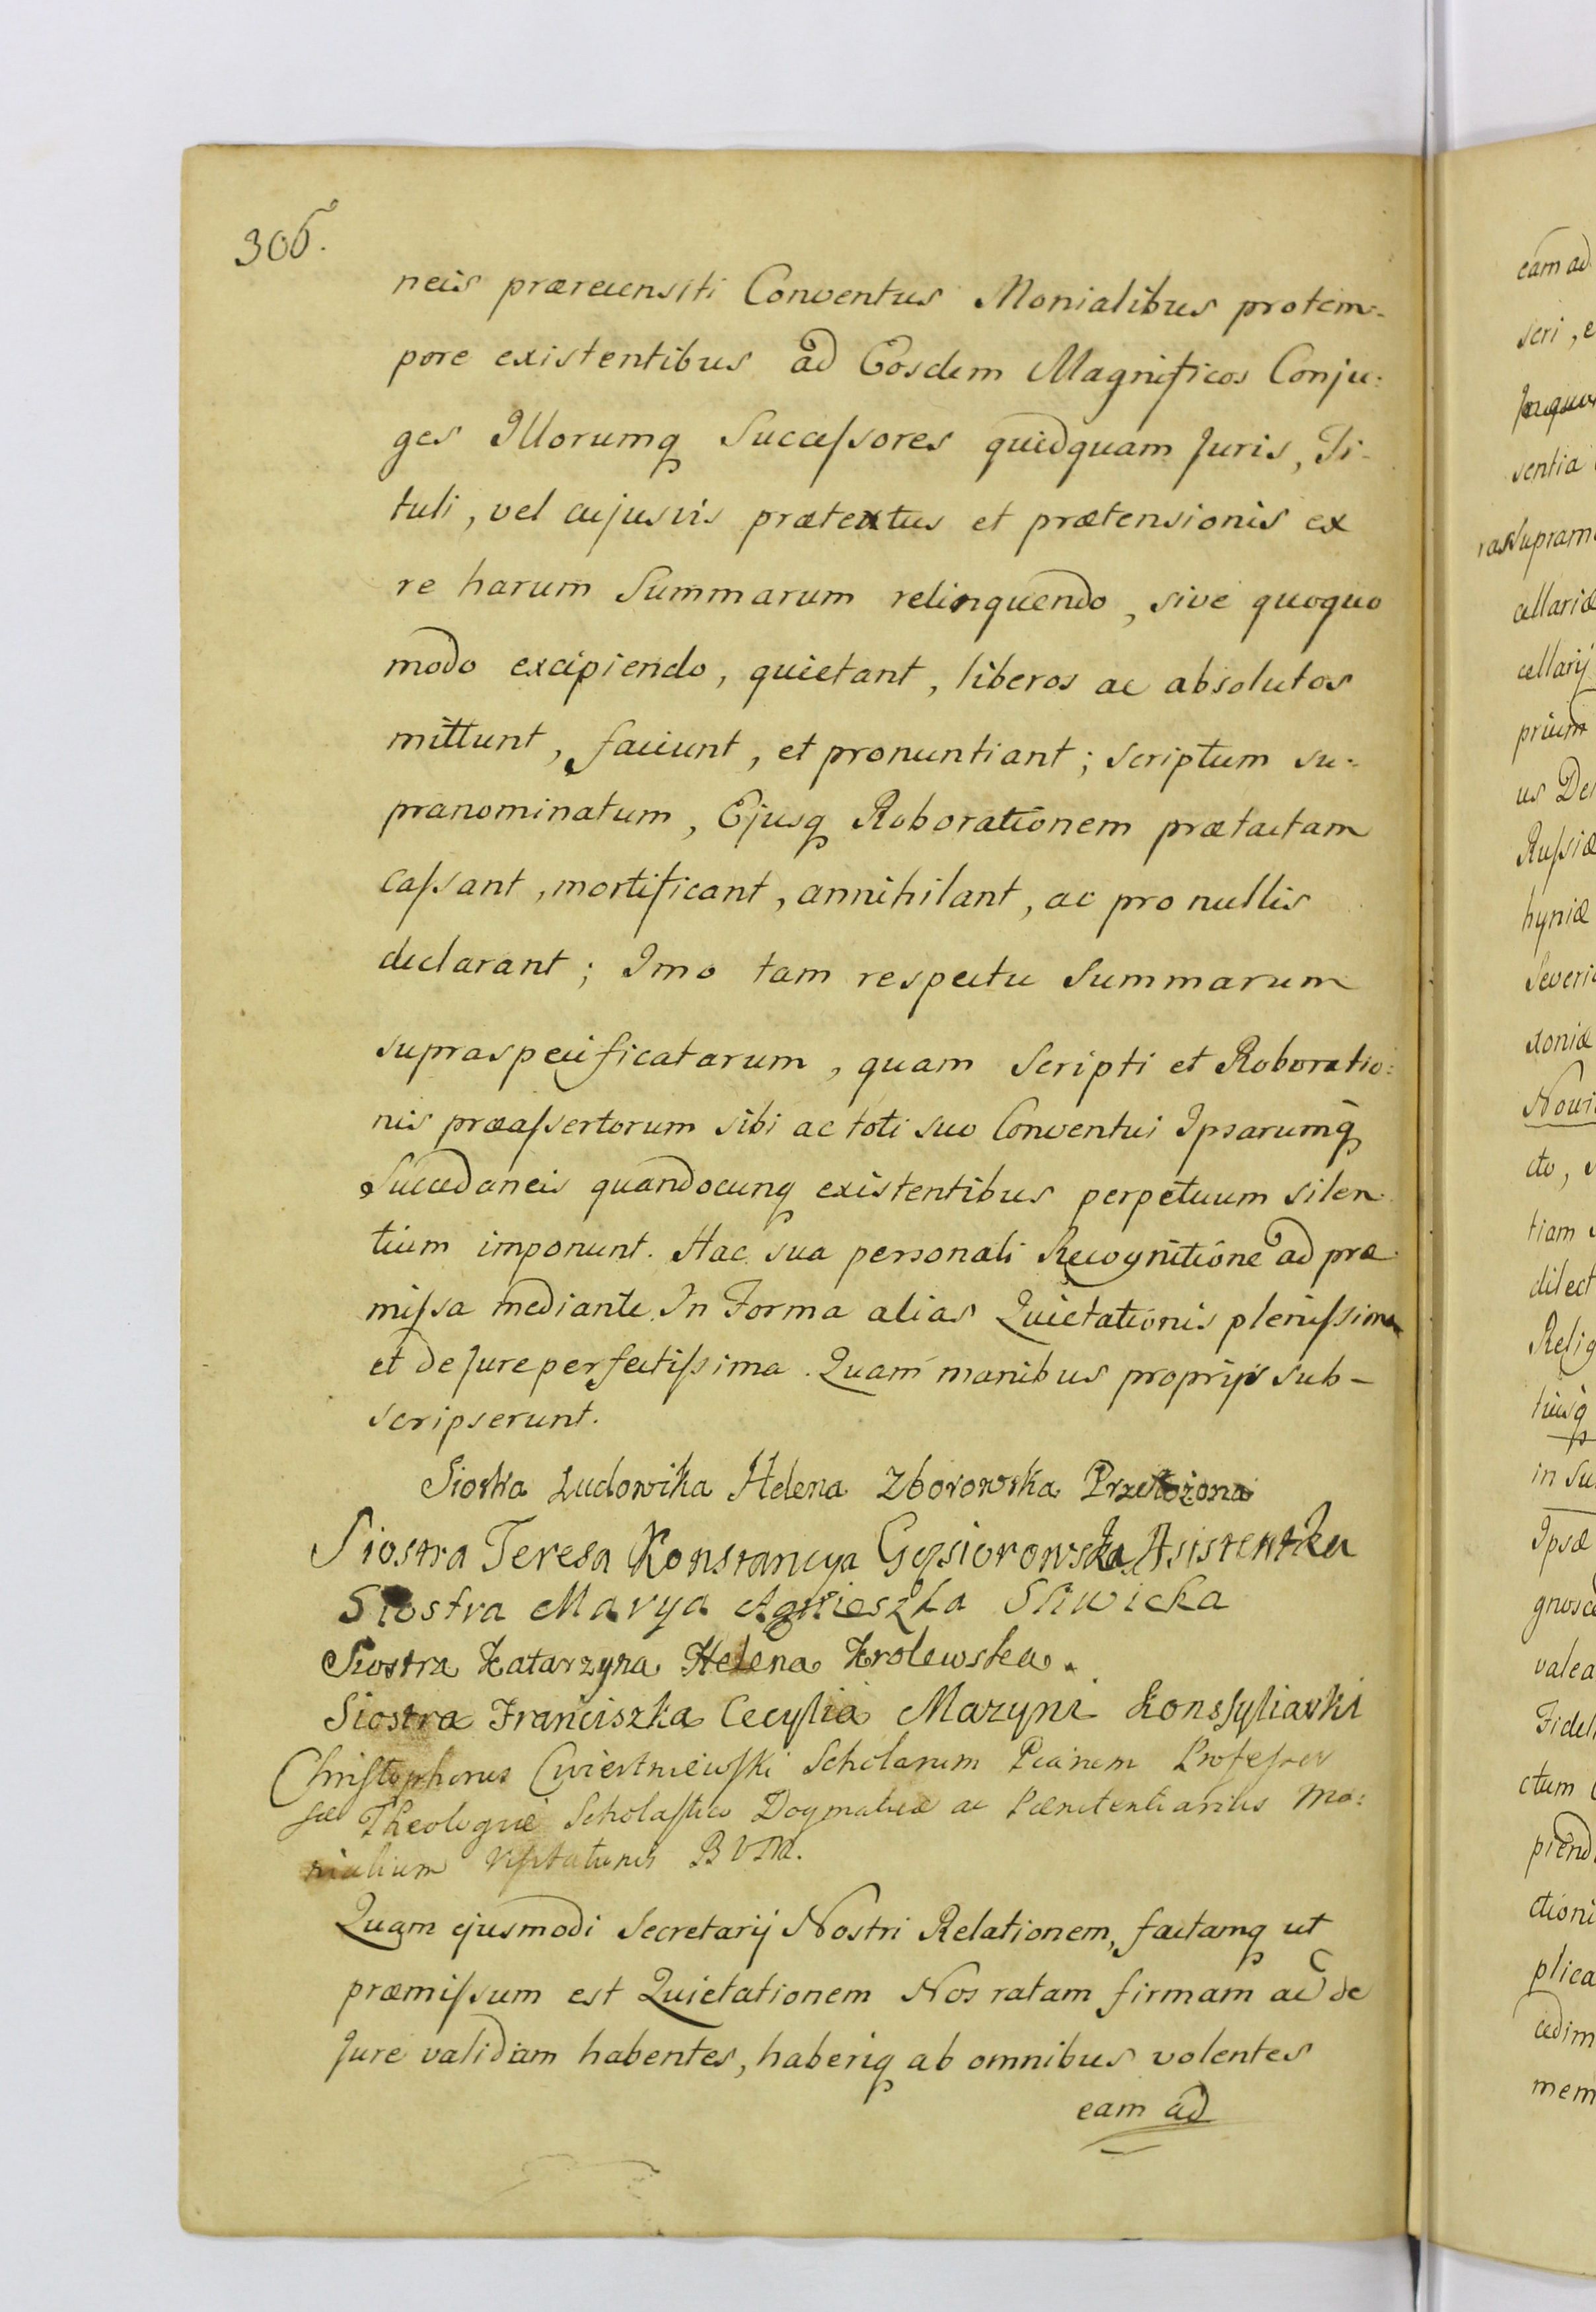 306.
neis præreiensiti Conventus Monialibus protem-
pore existentibus ad Eosdem Magnificos Conju:
ges Illorumq Succeſsores quidquam Juris, Ti-
tuli, vel cujusvis prætextus et prætensionis ex
re harum Summarum relinquendo, sive quoquo
modo excipiendo, quietant, liberos ac absolutos
mittunt, faciunt, et pronuntiant; scriptum su-
pranominatum, Ejusq Roborationem prætactam
caſsant, mortificant, annihilant, ac pro nullis
declarant; Imo tam respectu Summarum
supraspecificatarum, quam Scripti et Roboratio:
nis præaſsertorum sibi ac toti suo Conventui Ipsarumq
Succedaneis quandocunq existentibus perpetuum silen-
tium imponunt. Hac sua personali Recognitione ad præ-
miſsa mediante. In Forma alias Quietationis pleniſsima
et de Jure perfectiſsima. Quam manibus proprijs sub-
scripserunt.
Siostra Ludowika Helena Zborowska Przełożona
Siostra Teresa Konstancya Gąsiorowska Asistentka
Siostra Marya Agnieszka Sliwicka
Siostra Katarzyna Helena Krolewska.
Siostra Franciszka Cecylia Mazyni Konssyliarki
Chriſtophorus Cwiertniewſki Scholarum Piarum Profeſsor
Theologiæ Scholaſticæ Dogmaticæ ac Pænitentiarius Mo:
nialium Viſitationis B V M.
Quam ejusmodi Secretarij Nostri Relationem, factamq ut
præmiſsum est Quietationem Nos ratam firmam ac de
Jure validam habentes, haberiq ab omnibus volentes
eam ad
eam ad
seri, e
sentia
supram
cellariæ
cellarij
prium
us De
Ruſsiæ
hyniæ
Severi
xoniæ
Nowi
cto,
tiam
dilect
Relig
tiusq
in Su
Ipsæ
gnosce
valea
Fidel
ctum
piend
ctioni
plica
cedim
mem